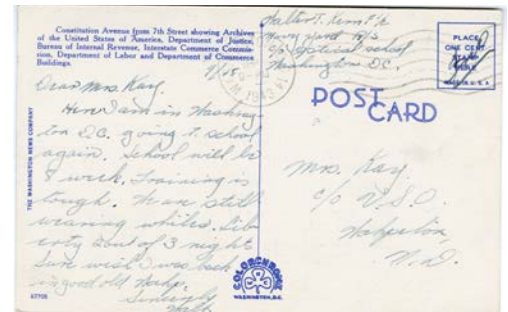 Constitution Avenue from 7th Street showing Archives
of the United States of America, Department of Justice,
Bureau of Internal Revenue, Interstate Commerce Commis-
sion, Department of Labor and Department of Commerce
Buildings.
9/15
Dear Mrs. Kay,
Here I am in Washing-
ton D.C. going to school
again. School will be
8 week. Training is
tough. We are still
wearing whites. Lib-
erty 2 out of 3 nights
Sure wish I was back
in good old Wahp.
Sincerely
Walt
THE WASHINGTON NEWS COMPANY
67705
Walter T. Kem F 1/c
Navy Yard
c/o optical school
Washington D.C.
PLACE
ONE CENT
STAMP
HERE
MADE IN U.S.A.
POST
CARD
Mrs. Kay
c/o U.S.O.
Wahpeton,
N.D.
COLORCHROME
WASHINGTON, D.C.